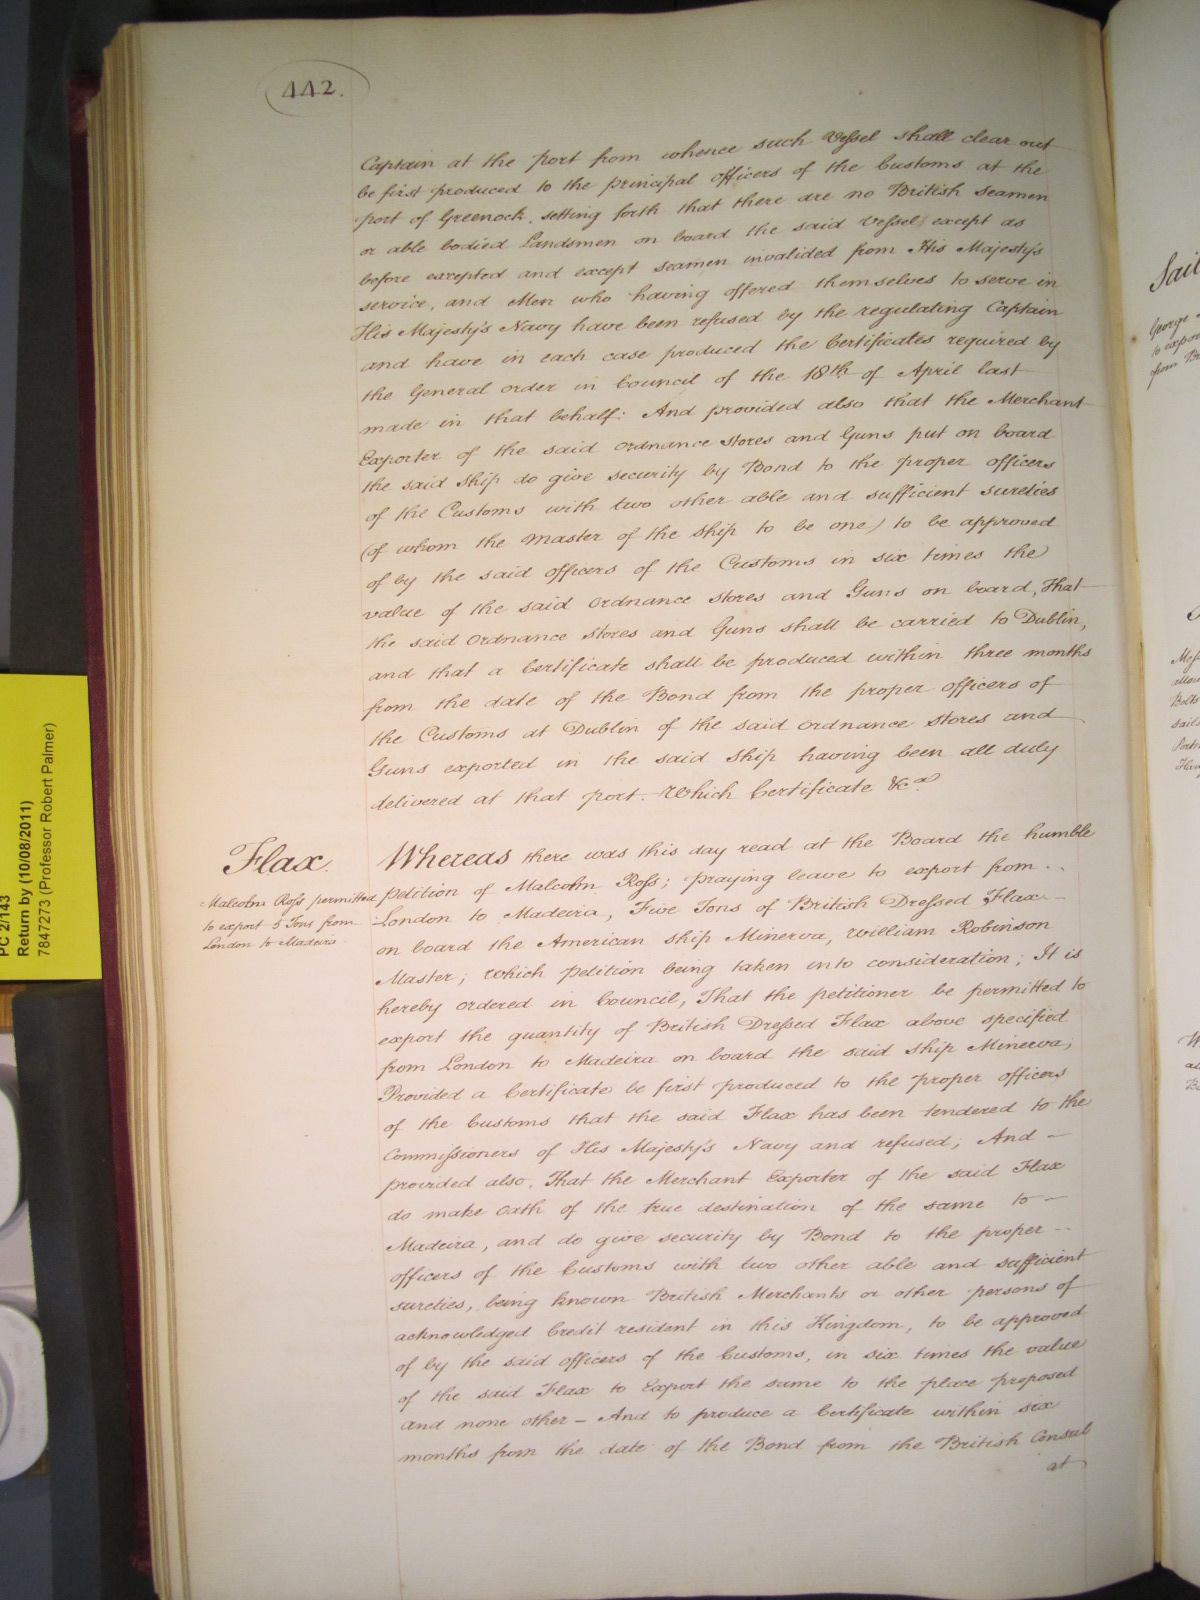 442.
Captain at the port from whence such Vessel shall clear out
be first produced to the principal officers of the Customs at the
port of Greenock, setting forth that there are no British Seamen
or able bodied Landsmen on board the said Vessel except as
before excepted and except seamen invalided from His Majesty's
service, and Men who having offered themselves to serve in
His Majesty's Navy have been refused by the regulating Captain
and have in each case produced the Certificates required by
the General order in Council of the 18th of April last
made in that behalf: And provided also that the Merchant
Exporter of the said ordnance stores and Guns put on board
the said Ship do give security by Bond to the proper officers
of the Customs with two other able and sufficient sureties
(of whom the Master of the ship to be one) to be approved
of by the said officers of the Customs in six times the
value of the said ordnance stores and Guns on board, That
the said ordnance stores and Guns shall be carried to Dublin,
and that a Certificate shall be produced within three months
from the date of the Bond from the proper officers of
the Customs at Dublin of the said ordnance stores and
Guns exported in the said Ship having been all duly
delivered at that port. Which Certificate &ca
Flax.
Malcolm Ross permitted
to export 5 Tons from
London to Madeira.
Whereas there was this day read at the Board the humble
petition of Malcolm Ross; praying leave to export from
London to Madeira, Five Tons of British Dressed Flax
on board the American ship Minerva, William Robinson
Master; which petition being taken into consideration; It is
hereby ordered in Council, That the petitioner be permitted to
export the quantity of British Dressed Flax above specified
from London to Madeira on board the said ship Minerva;
Provided a Certificate be first produced to the proper officers
of the Customs that the said Flax has been tendered to the
Commissioners of His Majesty's Navy and refused; And –
provided also, That the Merchant Exporter of the said Flax
do make oath of the true destination of the same to –
Madeira, and do give security by Bond to the proper –
officers of the Customs with two other able and sufficient
sureties, being known British Merchants or other persons of
acknowledged Credit resident in this Kingdom, to be approved
of by the said officers of the Customs, in six times the value
of the said Flax to Export the same to the place proposed
and none other – And to produce a Certificate within six
months from the date of the Bond from the British Consul
at
PC 2/143
Return by (10/08/2011)
7847273 (Professor Robert Palmer)
George
to expor
from